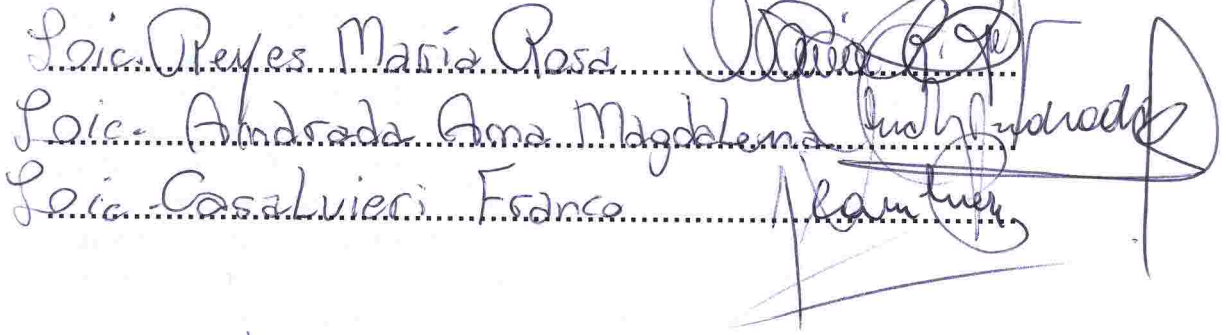 Loic. Reyes María Rosa
Loic. Andrada Ana Magdalena
Loic. Casalvieri Franco